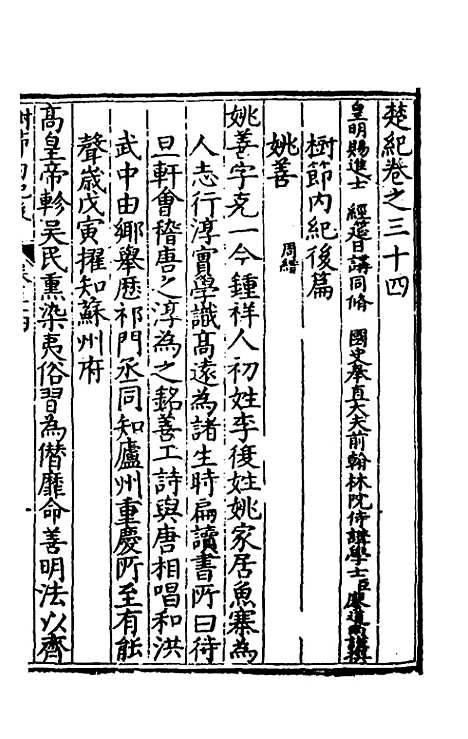 楚紀卷之三十四
皇明賜進士 經筵日講同脩 國史奉直大夫前翰林院侍講學士臣廖道南謹撰
樹節內紀後篇
姚善 周縉
姚善字克一今鍾祥人初姓李後姓姚家居魚寨為
人志行淳實學識高遠為諸生時扁讀書所曰待
旦軒會稽唐之淳為之銘善工詩與唐相唱和洪
武中由鄉舉歷祁門丞同知廬州重慶所至有能
聲歲戊寅擢知蘇州府
高皇帝軫吳民熏染夷俗習為僭靡命善明法以齊